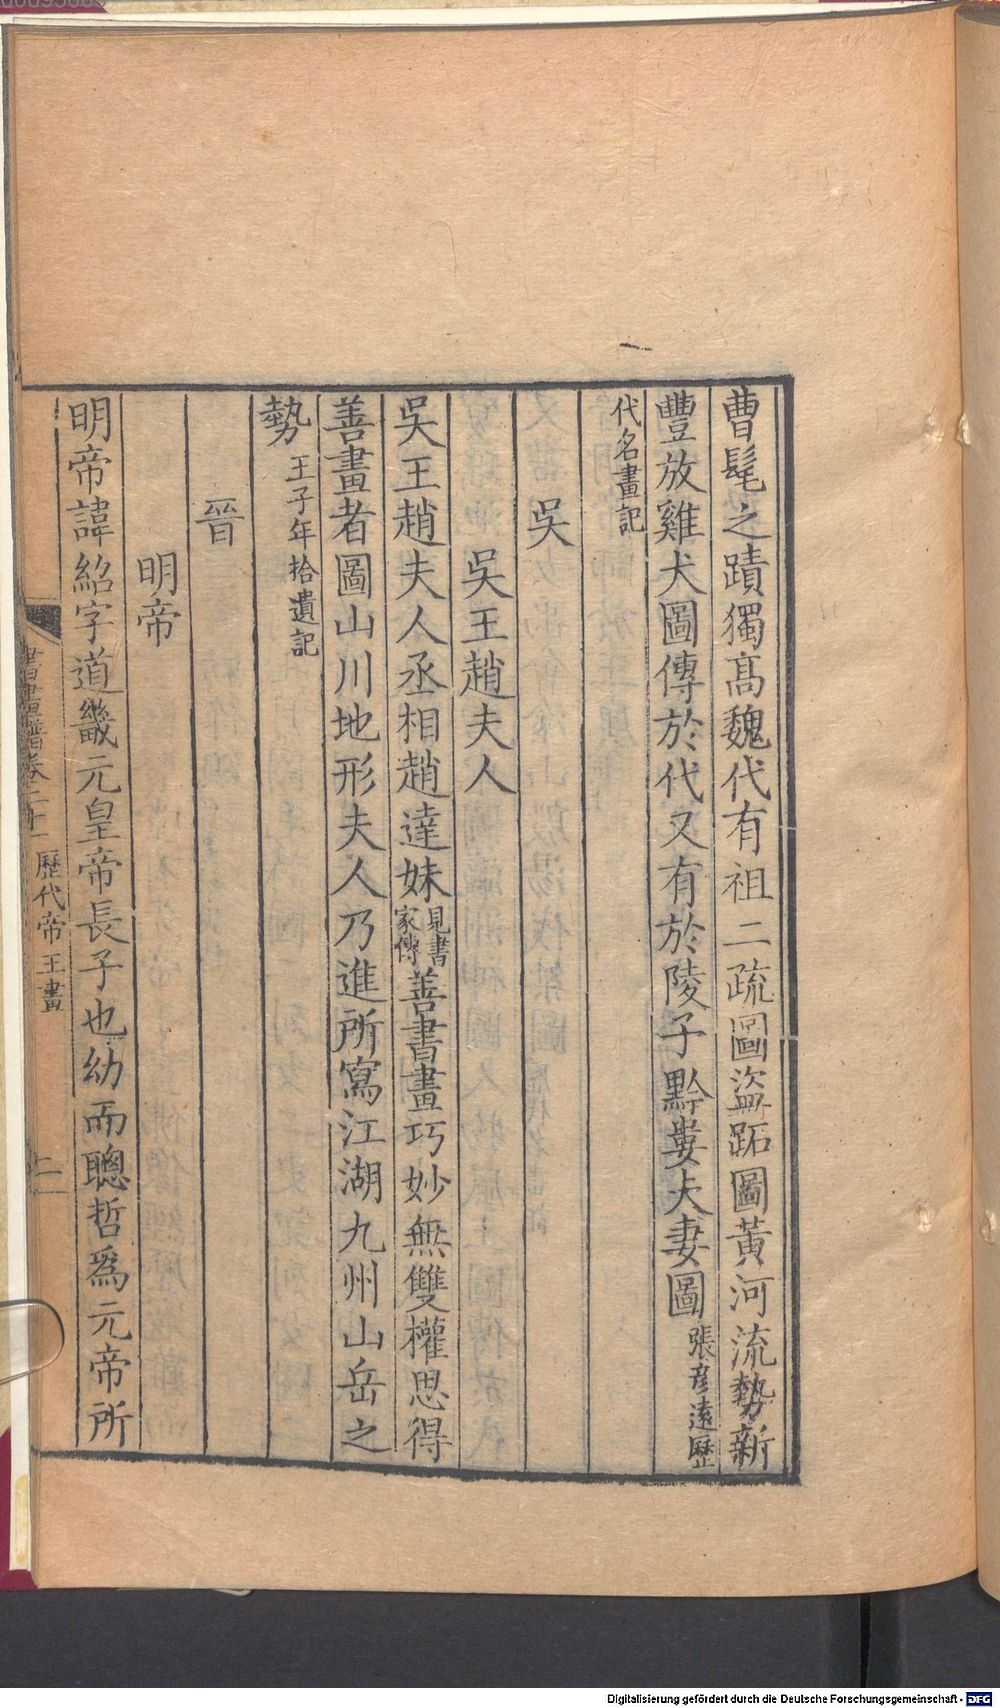 曹髦之蹟獨高魏代有祖二疏圖盜跖圖黃河流勢新
豐放雞犬圖傳於代又有於陵子黔婁夫妻圖張彦遠歷
代名畫記
吳
吳王趙夫人
吳王趙夫人丞相趙達妹見書家傳善書畫巧妙無雙權思得
善畫者圖山川地形夫人乃進所寫江湖九州山岳之
勢王子年拾遺記
晉
明帝
明帝諱紹字道畿元皇帝長子也幼而聰哲爲元帝所
書畫譜卷二十一 歷代帝王畫 二
Digitalisierung gefördert durch die Deutsche Forschungsgemeinschaft - DFG